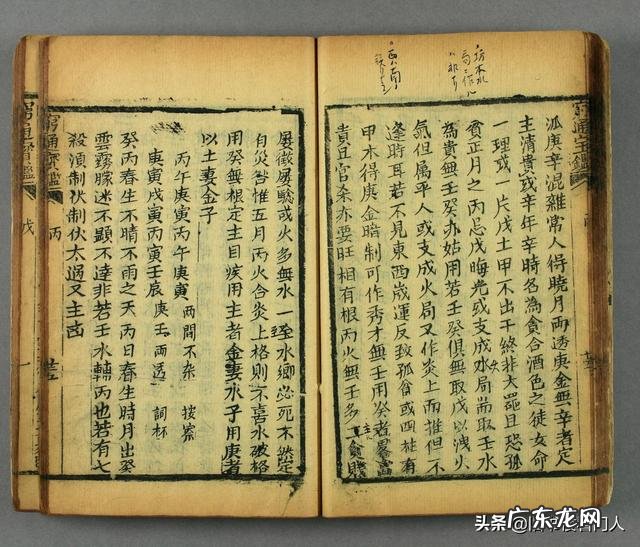 窮通寶鑑
派庚辛混雜常人得曉月兩透庚金無辛者定
主清貴或辛年辛時名為貪合酒色之徒女命
一理或一片戊土甲不出干終非大器且恐孤
貧正月之丙忌戊晦光或支成水局耑取壬水
為貴無壬癸亦姑用若壬癸俱無取戊以洩火
氣但屬平人或支成火局又作炎上而推但不
逢時耳若不見東西歲運反致孤貧或四柱有
甲木得庚金暗制可作秀才無壬用癸者畧富
貴且官杀亦要旺相有根丙火無壬多主貪賤
屡徵屡驗或火多無水一至水鄉必死不然定
自災咎惟五月丙火合炎上格則不喜水破格
用癸無根定主目疾用壬者金妻水子用庚者
以土妻金子
丙午庚寅丙午庚寅 兩間不杂 按察
庚寅戊寅丙寅壬辰 庚壬兩透 詞林
癸丙春生不晴不雨之天丙日春生時月出癸
雲霧朦迷不顯不達非若壬水輔丙也若有七
殺須制伏制伏太過又主凶
窮通寶鑑 丙
窮通寶鑑 戊
头条
广东龙网